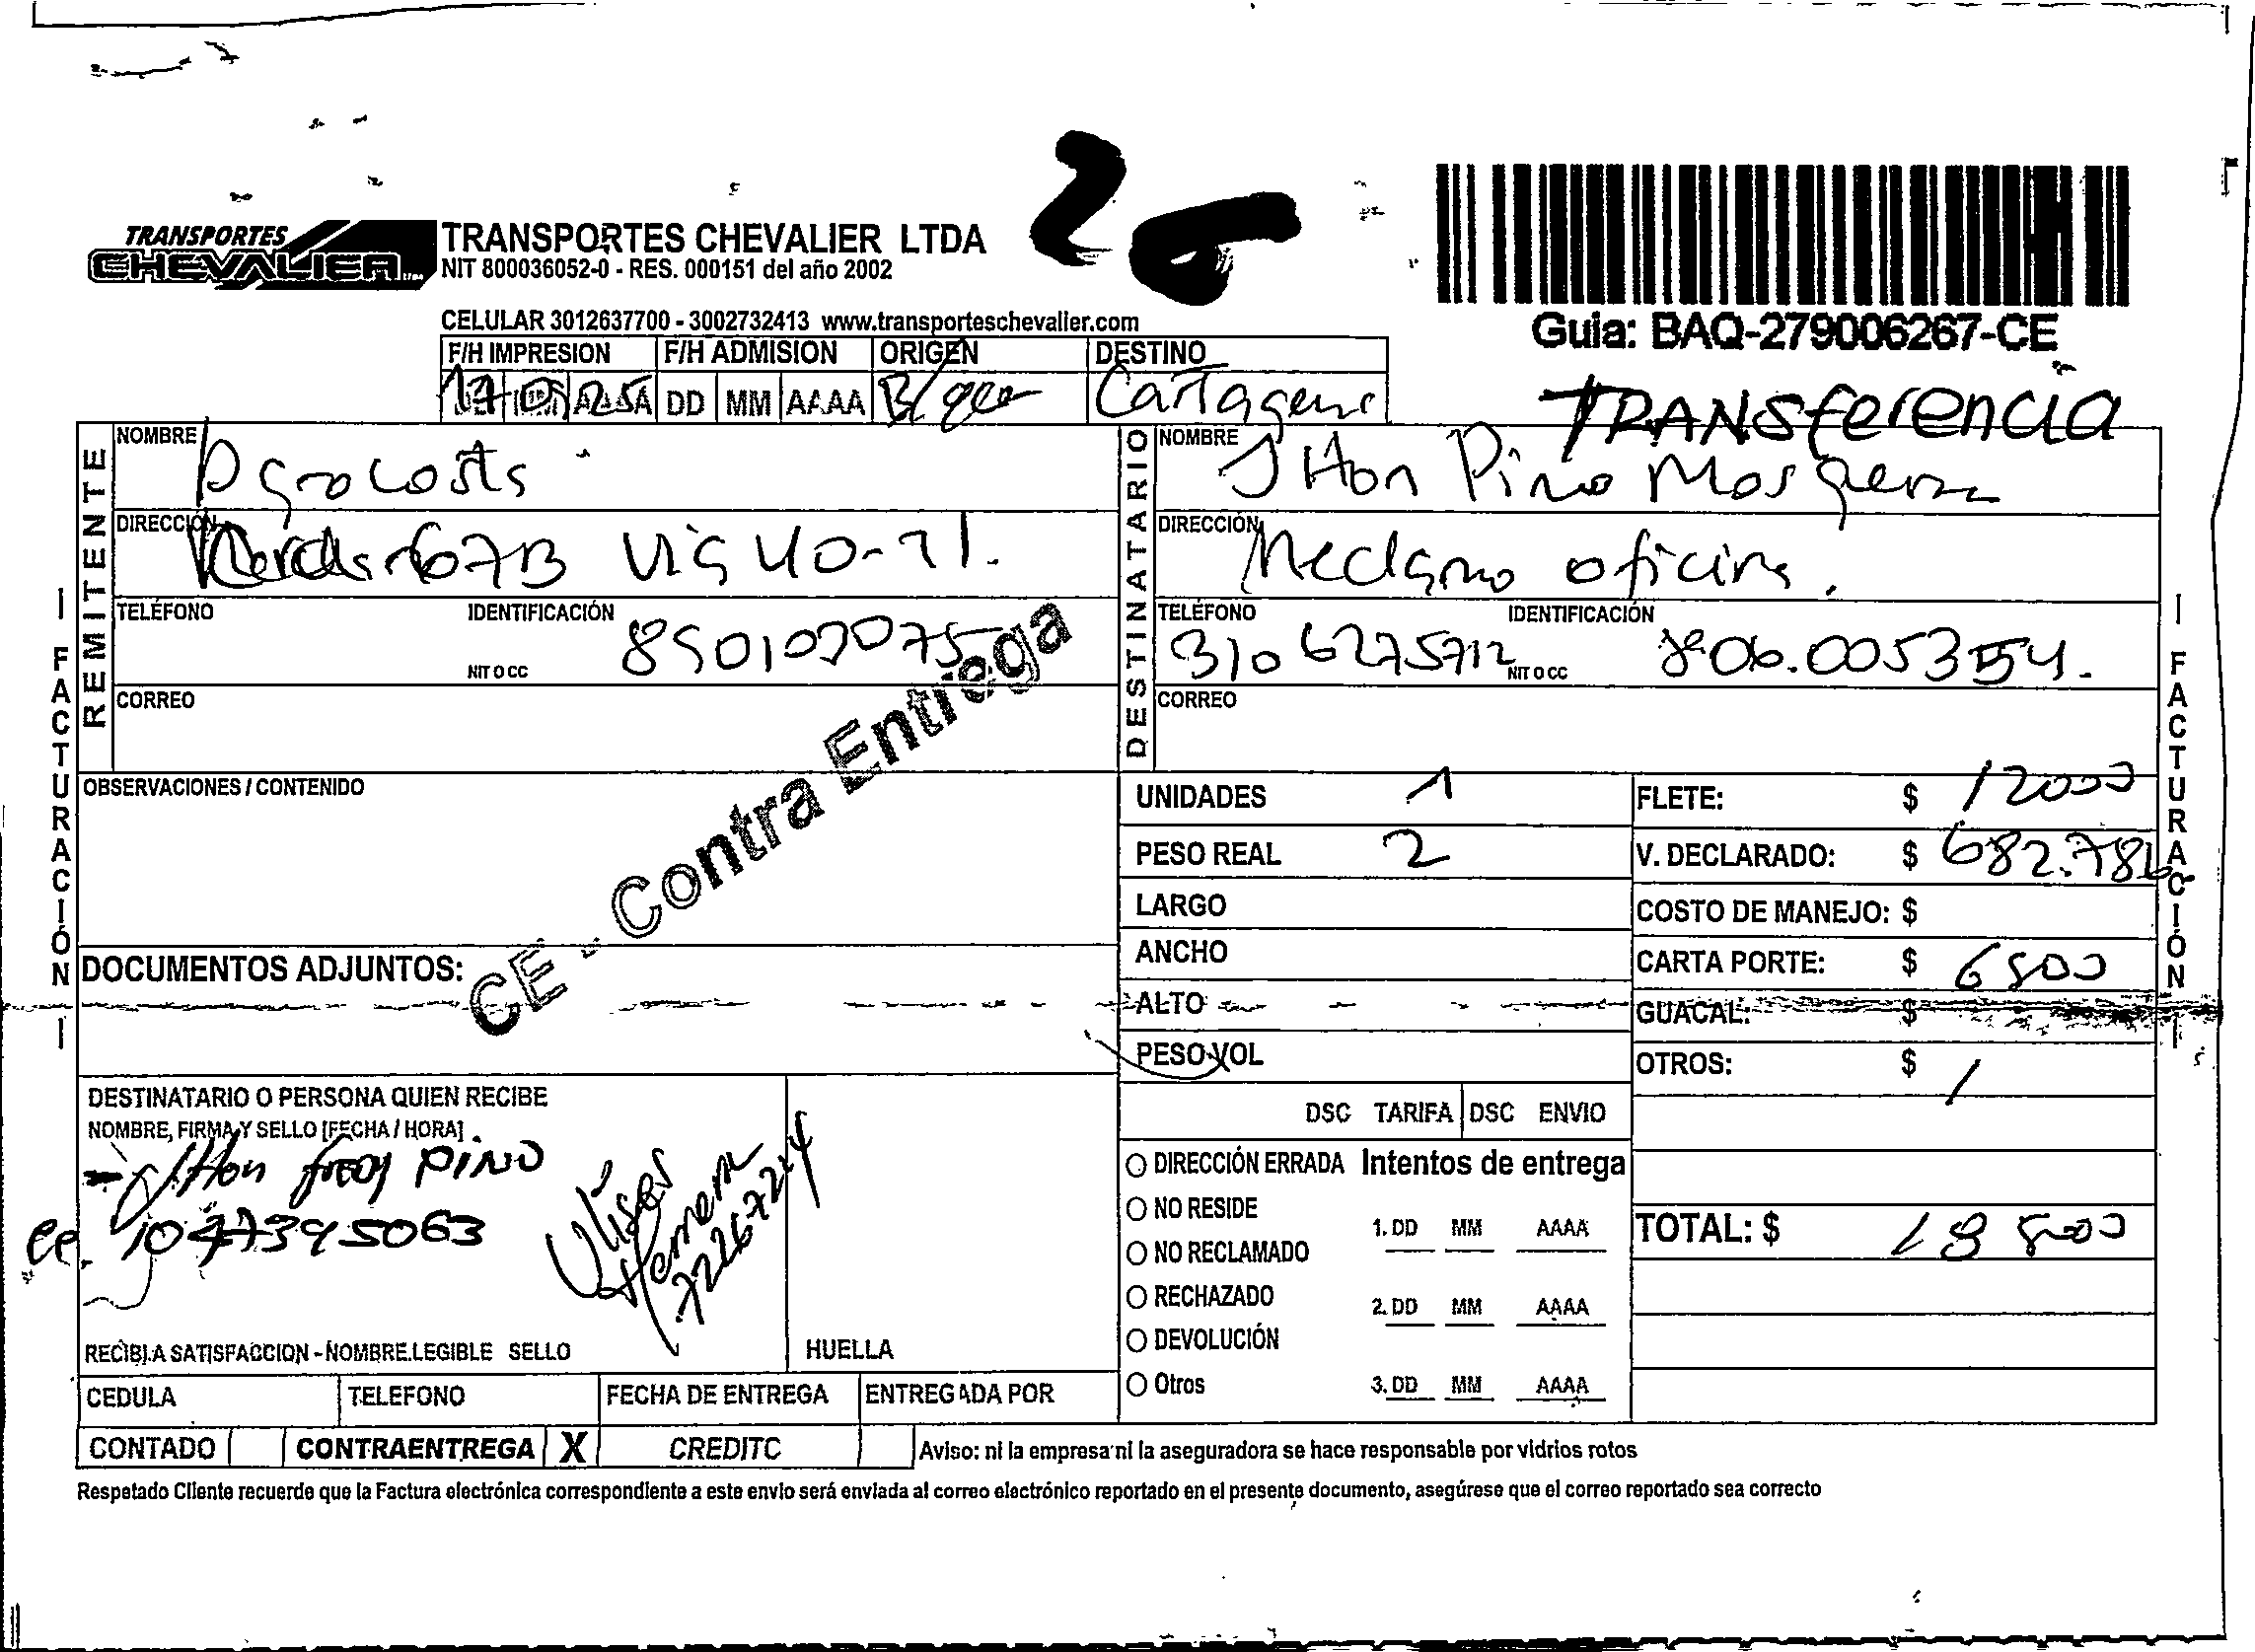 20
TRANSPORTES
CHEVALIER LTDA
TRANSPORTES CHEVALIER LTDA
NIT 800036052-0 - RES. 000151 del año 2002
CELULAR 3012637700 - 3002732413 www.transporteschevalier.com
Guia: BAQ-279006267-CE
TRANSferencia
F/H IMPRESION F/H ADMISION ORIGEN DESTINO
DD MM AAAA B/qlla Cartagena
REMITENTE
NOMBRE
Agrocosta
DIRECCIÓN
Vereda 67B Via 40-71.
TELÉFONO IDENTIFICACIÓN
NIT O CC
CORREO
DESTINATARIO
NOMBRE JHon Pino Mosquera
DIRECCIÓN Reclamo oficina.
TELÉFONO IDENTIFICACIÓN
310 6275712 NIT O CC 806.005354.
CORREO
| FACTURACIÓN |
OBSERVACIONES / CONTENIDO
CE - Contra Entrega
DOCUMENTOS ADJUNTOS:
UNIDADES 1
PESO REAL 2
LARGO
ANCHO
ALTO
PESO VOL
FLETE: $ 12000
V. DECLARADO: $ 682.786
COSTO DE MANEJO: $
CARTA PORTE: $ 6800
GUACAL: $
OTROS: $ /
TOTAL: $ 18800
| FACTURACIÓN |
DSC TARIFA DSC ENVIO
DIRECCIÓN ERRADA Intentos de entrega
NO RESIDE
1. DD MM AAAA
NO RECLAMADO
RECHAZADO
2. DD MM AAAA
DEVOLUCIÓN
Otros 3. DD MM AAAA
DESTINATARIO O PERSONA QUIEN RECIBE
NOMBRE, FIRMA Y SELLO [FECHA / HORA]
JHon fredy PINO
cc. 1047395063
Ulises
Herrera
7226724
RECIBI A SATISFACCION - NOMBRE LEGIBLE SELLO HUELLA
CEDULA TELEFONO FECHA DE ENTREGA ENTREGADA POR
CONTADO CONTRAENTREGA X CREDITO
Aviso: ni la empresa ni la aseguradora se hace responsable por vidrios rotos
Respetado Cliente recuerde que la Factura electrónica correspondiente a este envio será enviada al correo electrónico reportado en el presente documento, asegúrese que el correo reportado sea correcto